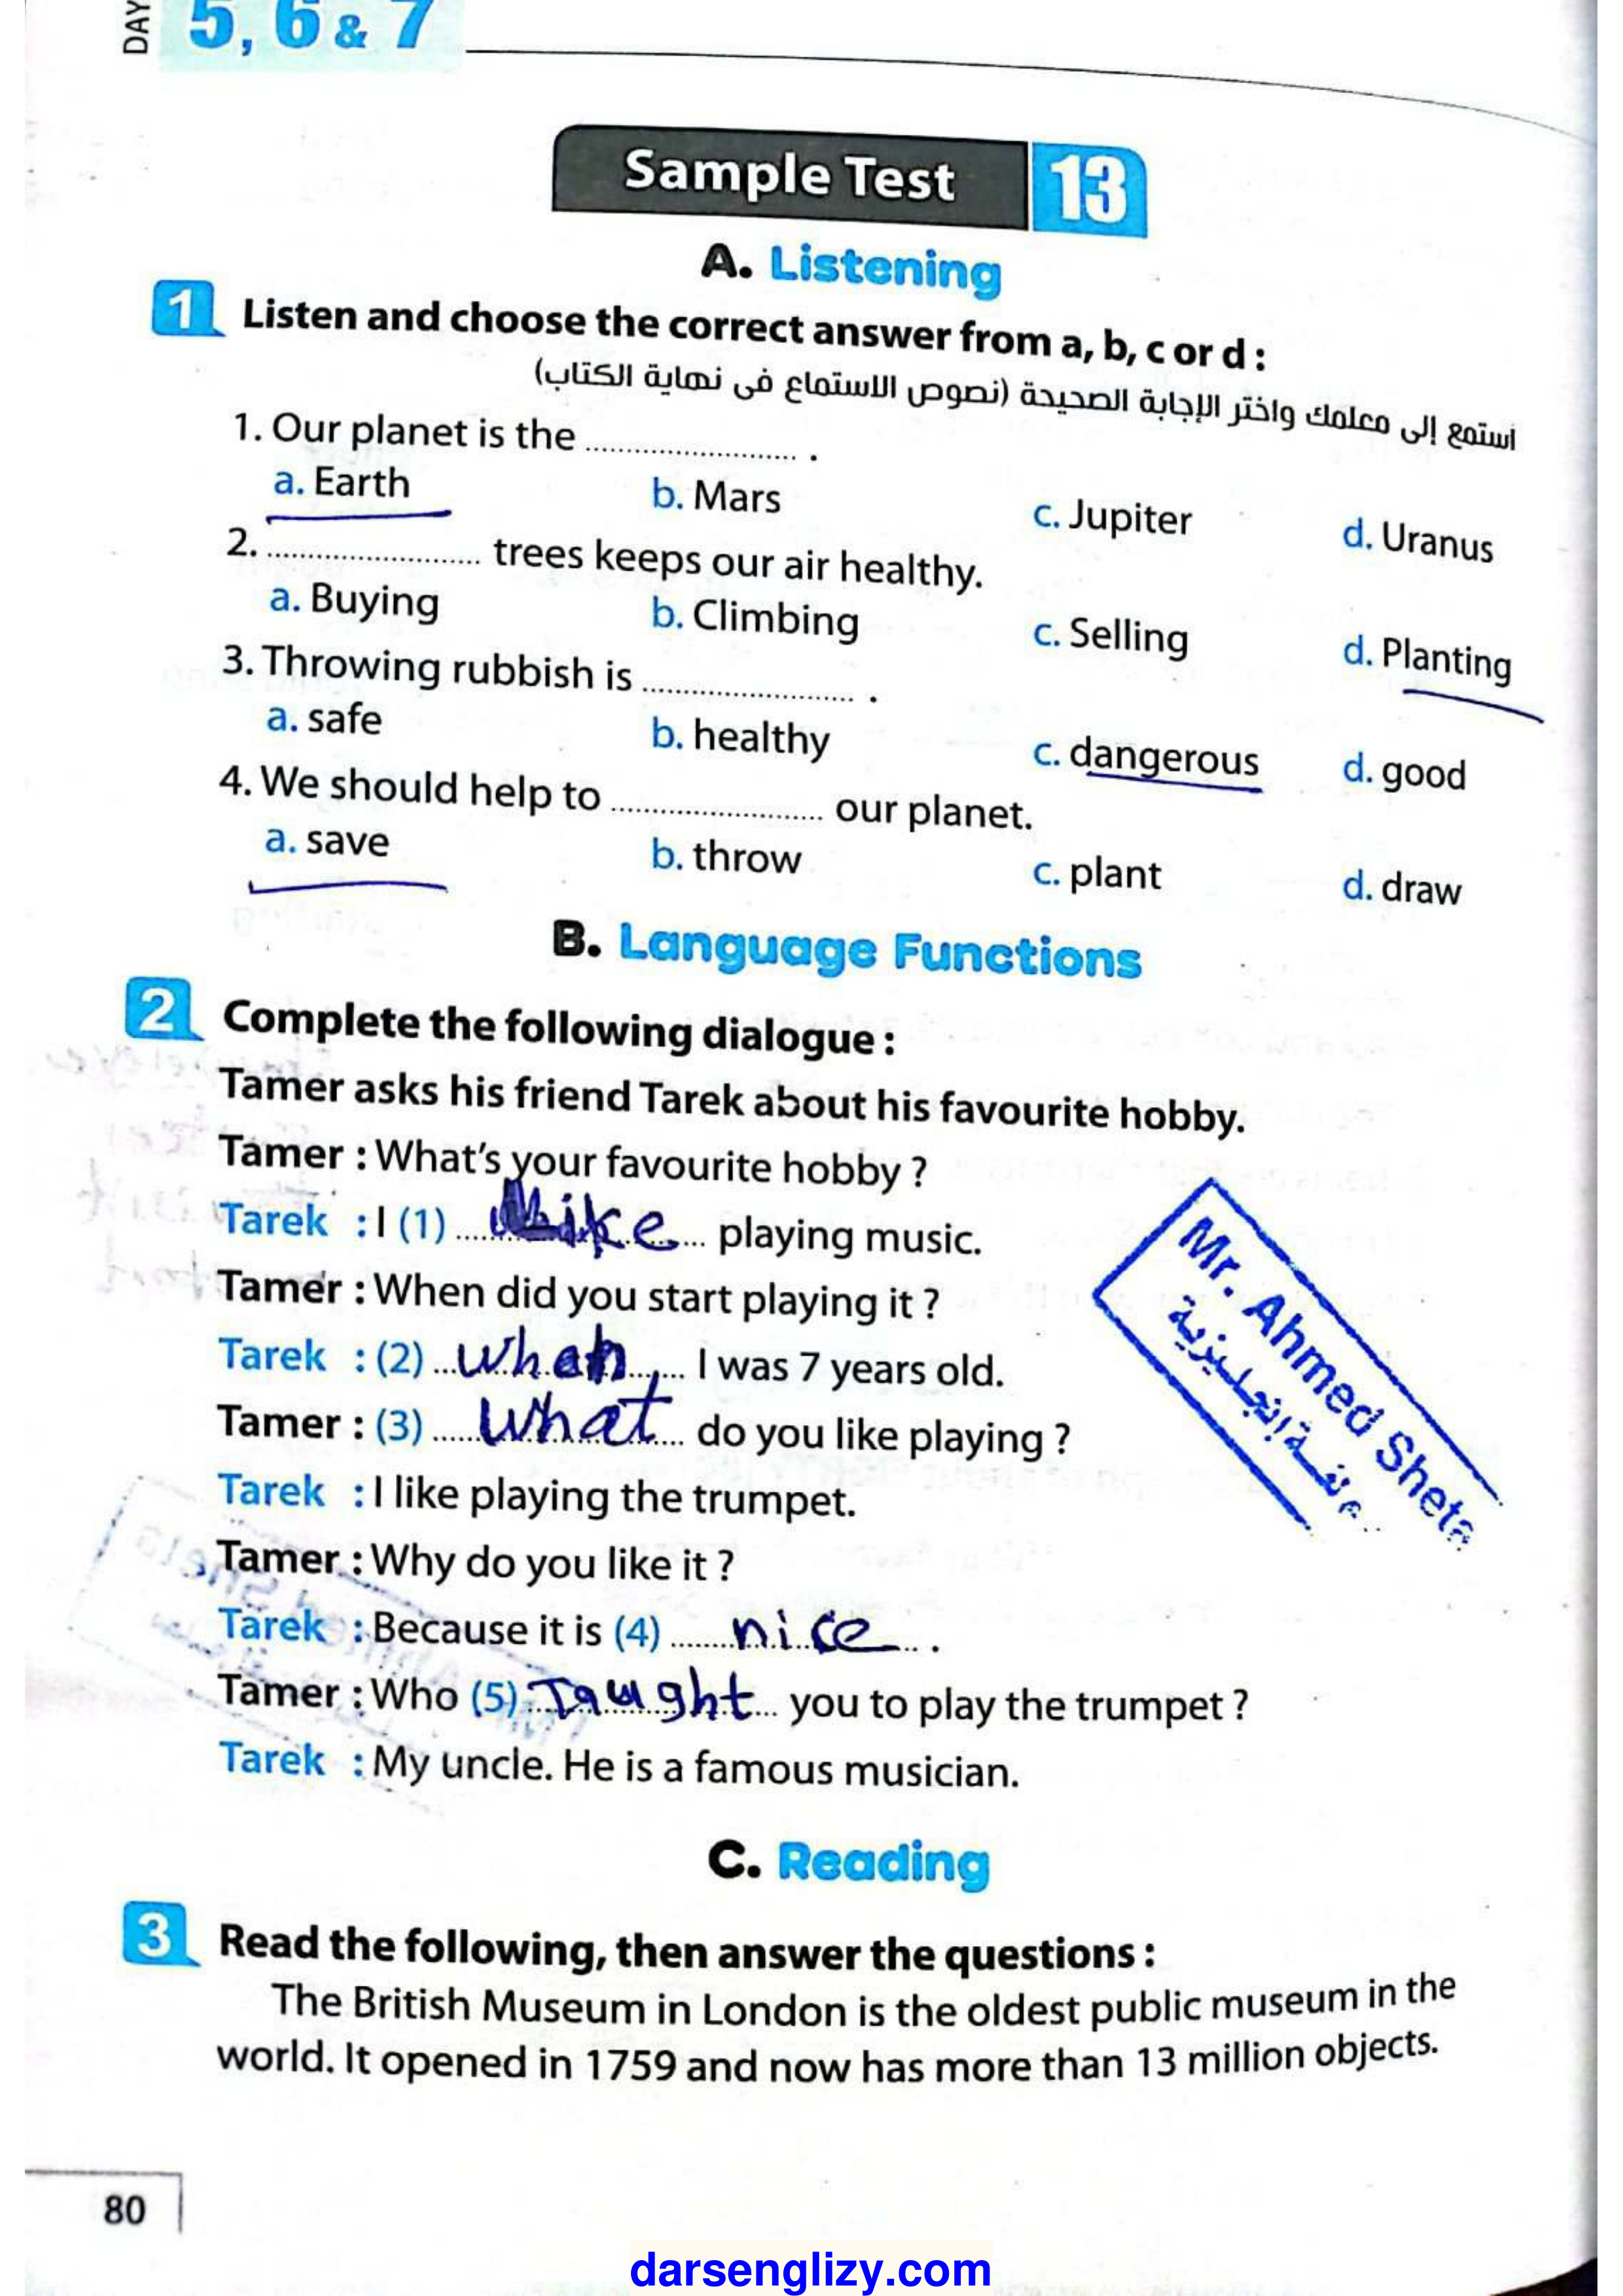 DAY 5, 6 & 7
Sample Test 13
A. Listening
1 Listen and choose the correct answer from a, b, c or d :
استمع إلى معلمك واختر الإجابة الصحيحة (نصوص الاستماع فى نهاية الكتاب)
1. Our planet is the ........................ .
a. Earth b. Mars c. Jupiter d. Uranus
2. ........................ trees keeps our air healthy.
a. Buying b. Climbing c. Selling d. Planting
3. Throwing rubbish is ........................ .
a. safe b. healthy c. dangerous d. good
4. We should help to ........................ our planet.
a. save b. throw c. plant d. draw
B. Language Functions
2 Complete the following dialogue :
Tamer asks his friend Tarek about his favourite hobby.
Tamer : What's your favourite hobby ?
Tarek : I (1) like playing music.
Tamer : When did you start playing it ?
Tarek : (2) when I was 7 years old.
Tamer : (3) what do you like playing ?
Tarek : I like playing the trumpet.
Tamer : Why do you like it ?
Tarek : Because it is (4) nice .
Tamer : Who (5) Taught you to play the trumpet ?
Tarek : My uncle. He is a famous musician.
Mr. Ahmed Sheta
C. Reading
3 Read the following, then answer the questions :
The British Museum in London is the oldest public museum in the
world. It opened in 1759 and now has more than 13 million objects.
80
darsenglizy.com